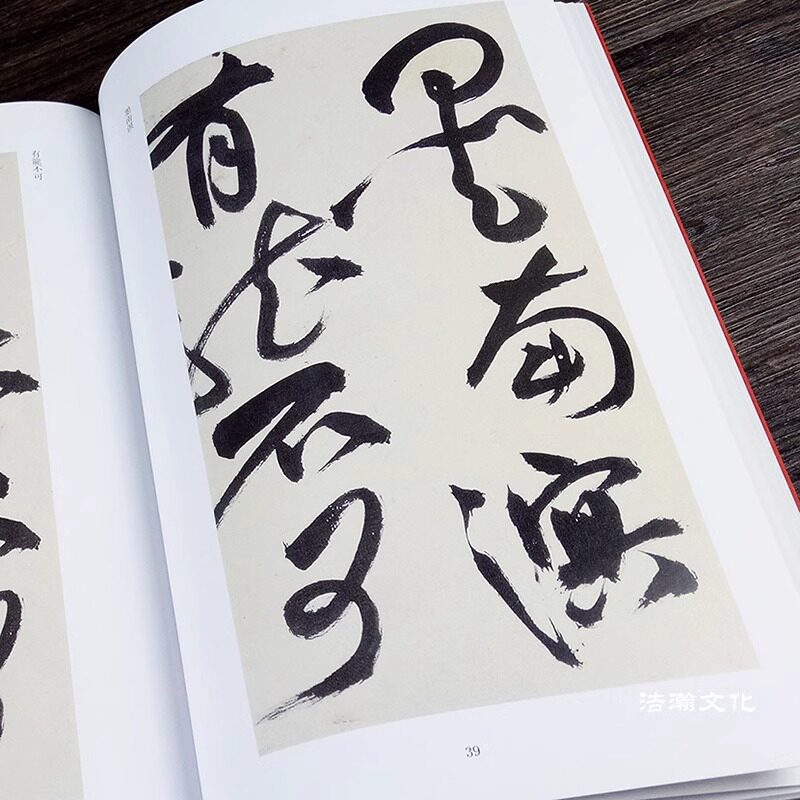 南溟
有能不可
南溟
有能不可
39
浩瀚文化